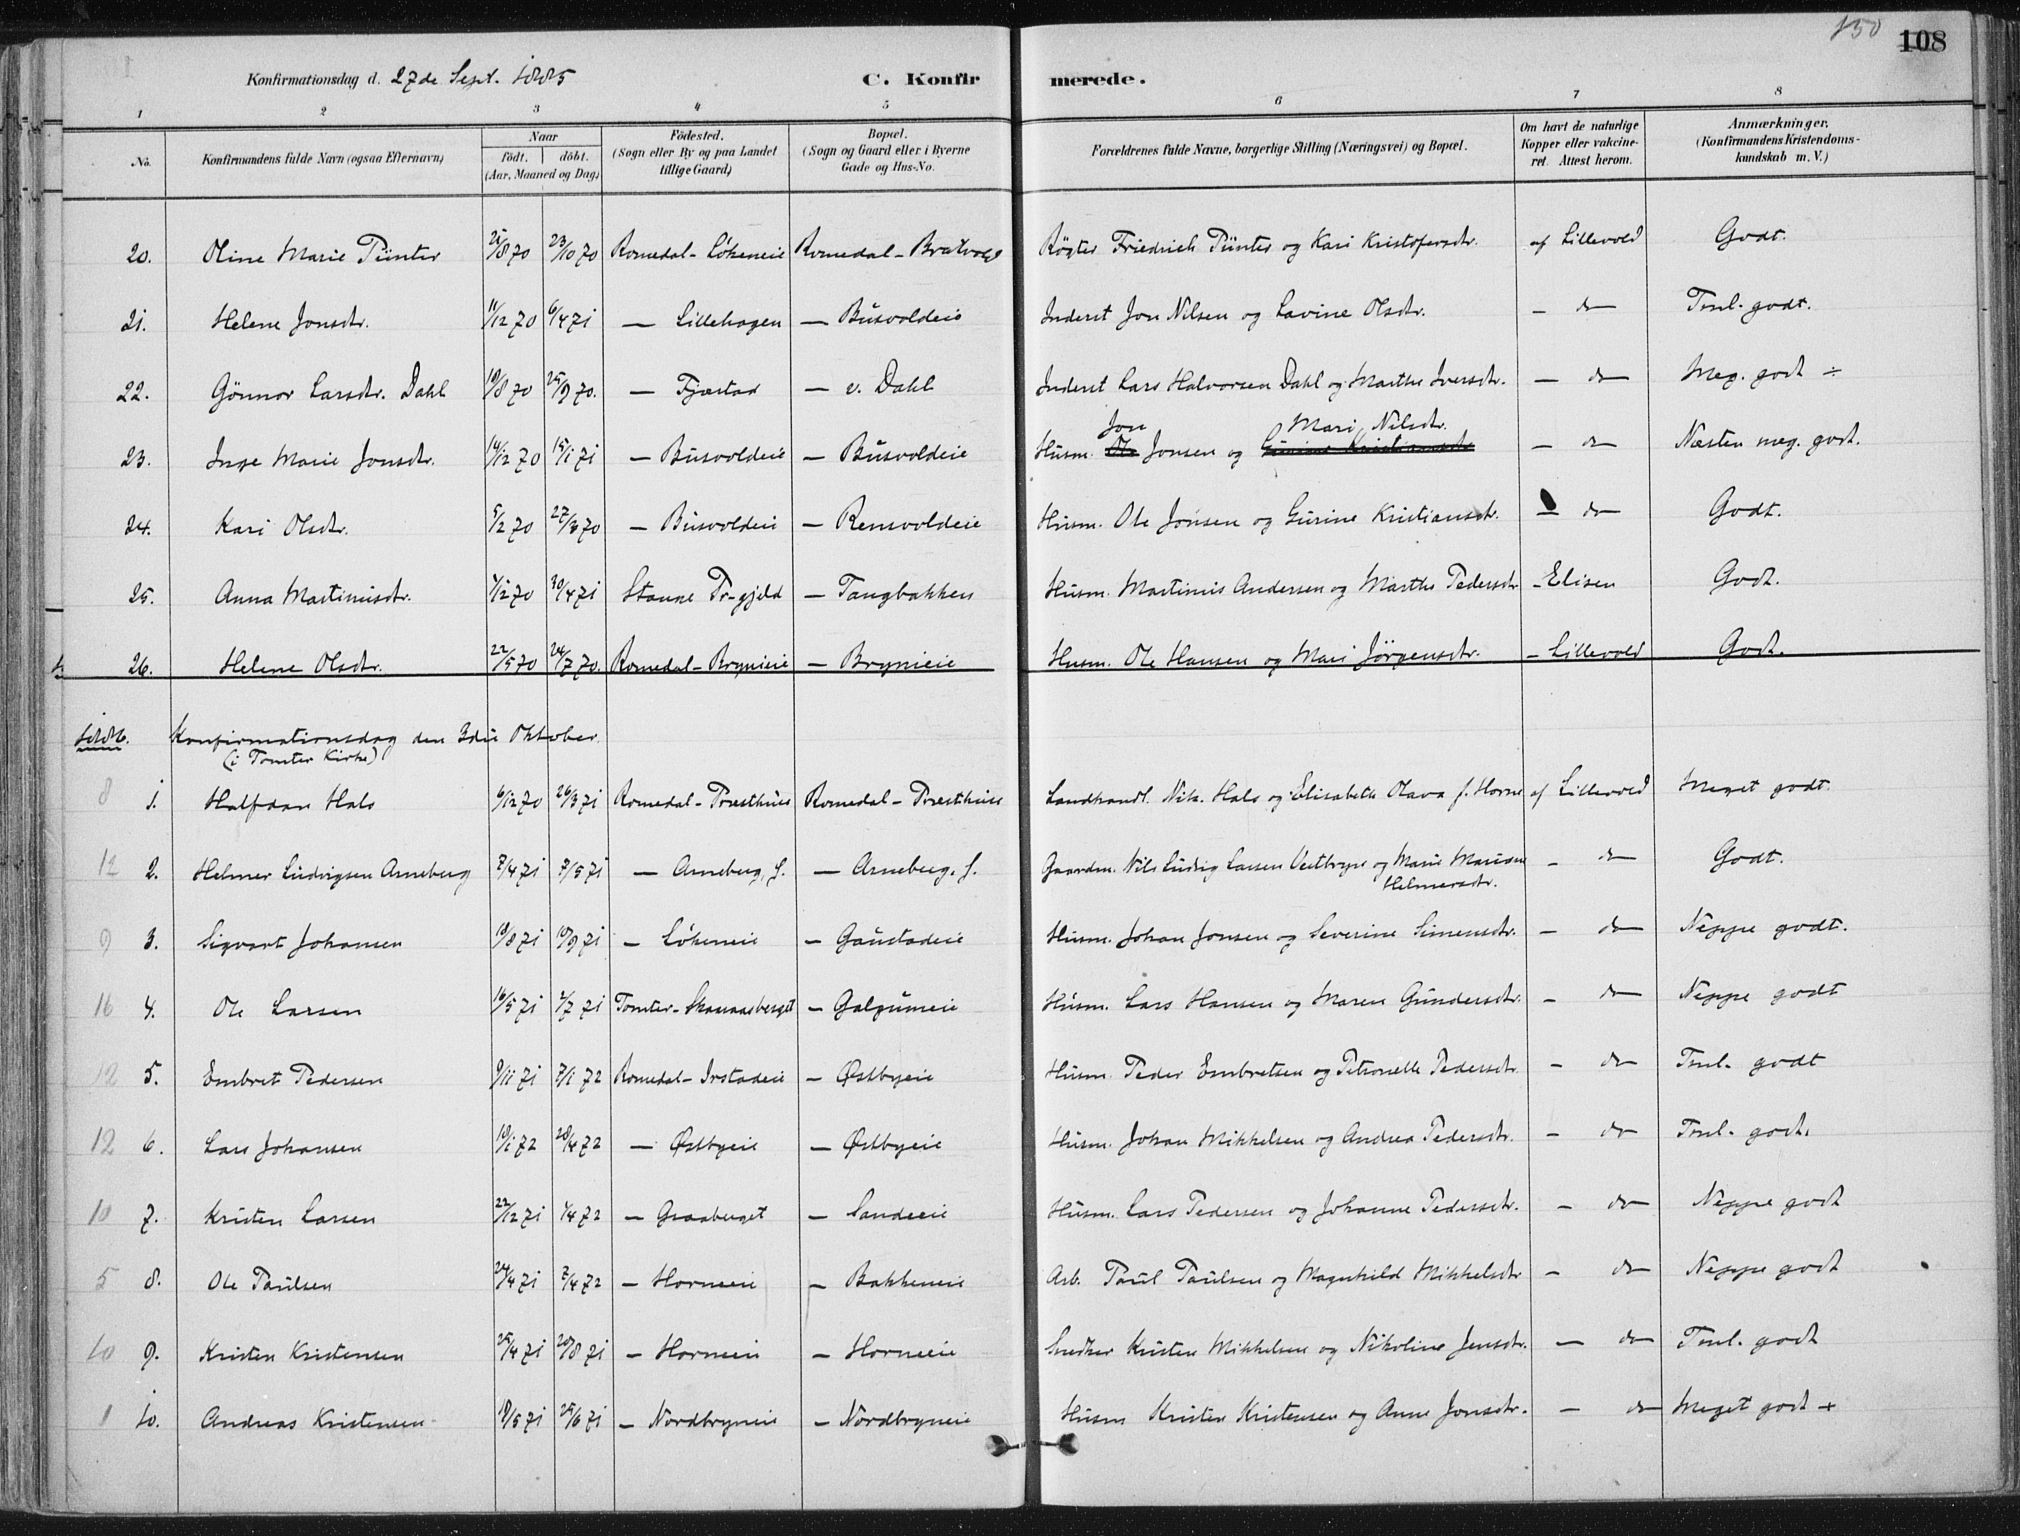 150
108
Konfirmationsdag d. 27de Sept. 1885
C. Konfirmerede.
1 2 3 4 5 6 7 8
No.
Konfirmandens fulde Navn (ogsaa Efternavn)
Naar
født. døbt.
(Aar, Maaned og Dag)
Födested.
(Sogn eller By og paa Landet
tillige Gaard)
Bopæl.
(Sogn og Gaard eller i Byerne
Gade og Hus-No.
Forældrenes fulde Navne, borgerlige Stilling (Næringsvei) og Bopæl.
Om havt de naturlige
Kopper eller vakcine-
ret. Attest herom.
Anmærkninger.
(Konfirmandens Kristendoms-
kundskab m. V.)
20. Oline Marie Pünter 21/8 70 23/10 70 Romedal - Løkeneie Romedal - Bratvold Røgter Friedrich Pünter og Kari Kristofersdtr. af Lillevold Godt.
21. Helene Jonsdtr. 11/12 70 6/4 71 — Lillehagen — Busvoldeie Inderst Jon Nilsen og Lavine Olsdtr. — do Tml. godt.
22. Gønnor Larsdtr. Dahl 18/8 70 25/9 70. — Fjæstad — v. Dahl Inderst Lars Halvorsen Dahl og Marthe Iversdtr. — do Meg. godt ÷
23. Inge Marie Jonsdtr. 14/12 70 15/1 71 — Busvoldeie — Busvoldeie Husm. Jon Jonsen og Mari Nilsdtr. — do Næsten meg. godt.
24. Kari Olsdtr. 5/2 70 27/3 70 — Busvoldeie — Rensvoldeie Husm. Ole Jonsen og Gurine Kristiansdtr. — do Godt.
25. Anna Martinusdtr. 7/12 70 30/4 71 Stange Pr-gjeld — Tangbakken Husm. Martinus Andersen og Marthe Pedersdtr. — Elisen Godt.
26. Helene Olsdtr. 22/5 70 24/7 70. Romedal - Brynieie — Brynieie Husm. Ole Hansen og Mari Jørgensdtr. — Lillevold Godt.
1886. Konfirmationsdag den 3die Oktober.
(i Tomter Kirke)
8 1. Halfdan Hals 6/12 70 26/3 71 Romedal - Præsthus Romedal - Præsthus Landhandl. Nik. Hals og Elisabeth Olava f. Horne af Lillevold Meget godt.
12 2. Helmer Ludvigsen Arneberg 7/4 71 7/5 71 — Arneberg, s. — Arneberg, s. Gaardm. Nils Ludvig Larsen Vestbryn og Marie Mariane
Helmersdtr. — do Godt.
9 3. Sigvart Johansen 18/8 71 10/9 71 — Løkeneie — Gaustadeie Husm. Johan Jonsen og Severine Simensdtr. — do Neppe godt.
16 4. Ole Larsen 16/5 71 2/7 71 Tomter - Skaraasberget — Galgumeie Husm. Lars Hansen og Maren Gundersdtr. — do Neppe godt
12 5. Embret Pedersen 9/11 71 7/1 72 Romedal - Irstadeie — Østbyeie Husm. Peder Embretsen og Petronelle Pedersdtr. — do Tml. godt
12 6. Lars Johansen 18/1 72 28/4 72 — Østbyeie — Østbyeie Husm. Johan Mikkelsen og Andrea Pedersdtr. — do Tml. godt.
10 7. Kristen Larsen 22/12 71 1/4 72 — Graaberget — Sandeeie Husm. Lars Pedersen og Johanne Pedersdtr. — do Neppe godt
5 8. Ole Paulsen 24/4 71 7/4 72 — Horneeie — Bakkeneie Arb. Paul Paulsen og Magnhild Mikkelsdtr — do Neppe godt
10 9. Kristen Kristensen 25/4 71 20/8 71 — Horneeie — Horneeie Snedker Kristen Mikkelsen og Nikoline Jensdtr. — do Tml. godt
1 10. Andreas Kristensen 19/5 71 25/6 71 — Nordbryneie — Nordbryneie Husm Kristen Kristensen og Anne Jonsdtr. — do Meget godt +